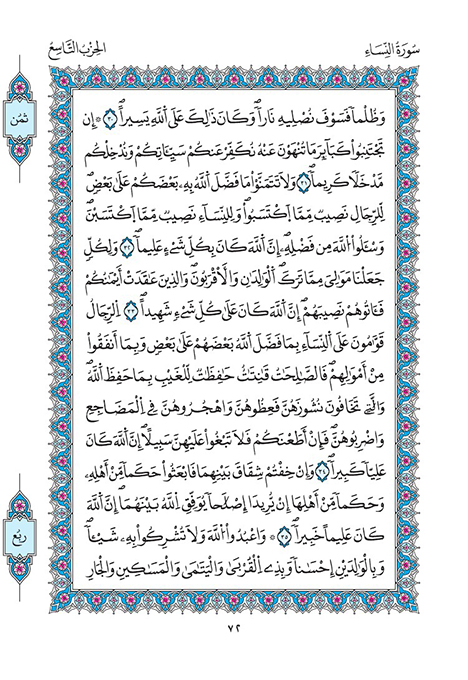 سُورَةُ النِّسَاءِ
الحِزْبُ التَّاسِعُ
ثُمُن
وَظُلْماً فَسَوْفَ نُصْلِيهِ نَاراًۖ وَكَانَ ذَٰلِكَ عَلَى اَللَّهِ يَسِيراًۖ ٣٠ * إِن
تَجْتَنِبُواْ كَبَآئِرَ مَا تُنْهَوْنَ عَنْهُ نُكَفِّرْ عَنكُمْ سَيِّـَٔاتِكُمْ وَنُدْخِلْكُم
مَّدْخَلاً كَرِيماًۖ ٣١ وَلَا تَتَمَنَّوْاْ مَا فَضَّلَ اَللَّهُ بِهِۦ بَعْضَكُمْ عَلَىٰ بَعْضٍۖ
لِّلرِّجَالِ نَصِيبٌ مِّمَّا اَكْتَسَبُواْۖ وَلِلنِّسَآءِ نَصِيبٌ مِّمَّا اَكْتَسَبْنَۖ
وَسْـَٔلُواْ اُللَّهَ مِن فَضْلِهِۦٓۖ إِنَّ اَللَّهَ كَانَ بِكُلِّ شَےْءٍ عَلِيماًۖ ٣٢ وَلِكُلٍّ
جَعَلْنَا مَوَٰلِيَ مِمَّا تَرَكَ اَلْوَٰلِدَٰنِ وَالَاقْرَبُونَۖ وَالذِينَ عَٰقَدَتَ اَيْمَٰنُكُمْ
فَـَٔاتُوهُمْ نَصِيبَهُمُۥٓۖ إِنَّ اَللَّهَ كَانَ عَلَىٰ كُلِّ شَےْءٍ شَهِيداًۖ ٣٣ اِلرِّجَالُ
قَوَّٰمُونَ عَلَى اَلنِّسَآءِ بِمَا فَضَّلَ اَللَّهُ بَعْضَهُمْ عَلَىٰ بَعْضٍ وَبِمَآ أَنفَقُواْ
مِنَ اَمْوَٰلِهِمْۖ فَالصَّٰلِحَٰتُ قَٰنِتَٰتٌ حَٰفِظَٰتٌ لِّلْغَيْبِ بِمَا حَفِظَ اَللَّهُۖ
وَالتِے تَخَافُونَ نُشُوزَهُنَّ فَعِظُوهُنَّ وَاهْجُرُوهُنَّ فِے اِلْمَضَاجِعِ
وَاضْرِبُوهُنَّۖ فَإِنَ اَطَعْنَكُمْ فَلَا تَبْغُواْ عَلَيْهِنَّ سَبِيلاًۖ اِنَّ اَللَّهَ كَانَ
عَلِيّاً كَبِيراًۖ ٣٤ وَإِنْ خِفْتُمْ شِقَاقَ بَيْنِهِمَا فَابْعَثُواْ حَكَماً مِّنَ اَهْلِهِۦ
وَحَكَماً مِّنَ اَهْلِهَآۖ إِن يُّرِيدَآ إِصْلَٰحاً يُوَفِّقِ اِللَّهُ بَيْنَهُمَآۖ إِنَّ اَللَّهَ
كَانَ عَلِيماً خَبِيراًۖ ٣٥ * وَاعْبُدُواْ اُللَّهَ وَلَا تُشْرِكُواْ بِهِۦ شَيْـٔاًۖ
وَبِالْوَٰلِدَيْنِ إِحْسَٰناً وَبِذِے اِلْقُرْبَىٰ وَالْيَتَٰمَىٰ وَالْمَسَٰكِينِ وَالْجَارِ
رُبُع
٧٢